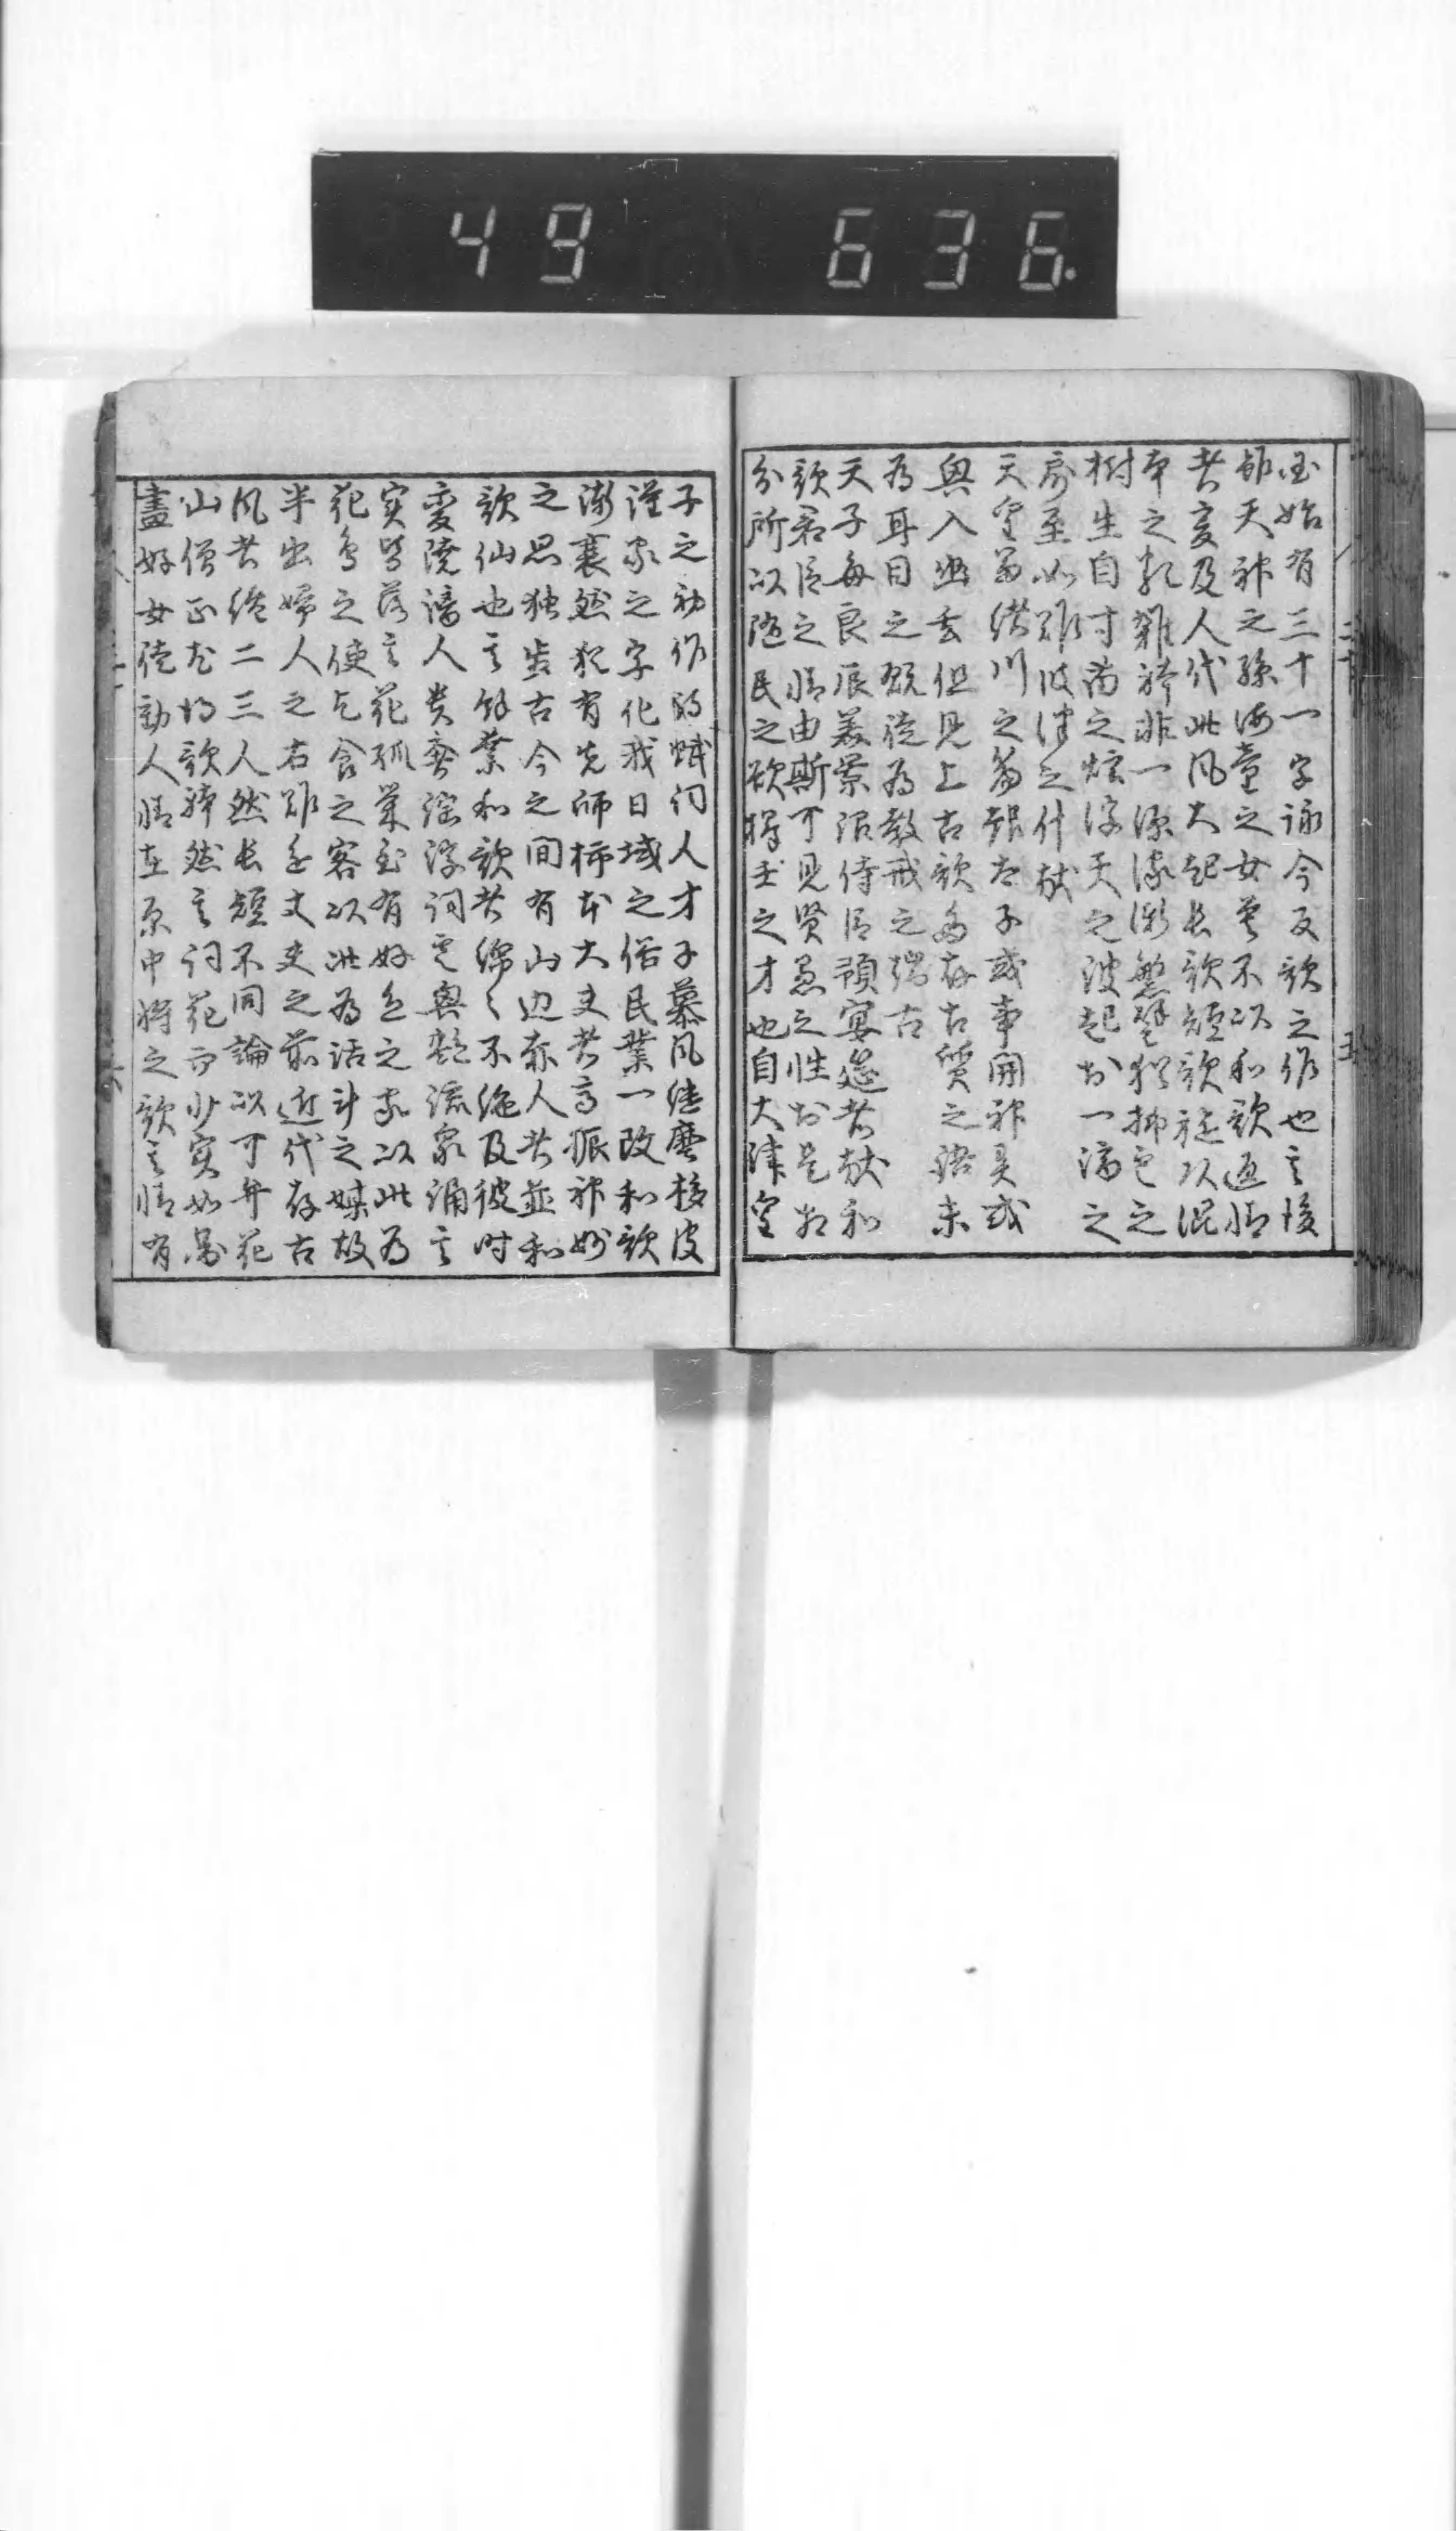 49 636.
国始有三十一字詠今反歌之作也其後
雖天神之孫海童之女莫不以和歌通情
者爰及人代此風大起長歌短歌旋頭混
本之類雜躰非一源流漸繁譬猶拂雲之
樹生自寸苗之煙浮天之波起於一滴之
露至如難波津之什献
天皇富緒川之篇報太子或事関神異或
興入幽玄但見上古歌多存古質之語未
為耳目之翫徒為教戒之端古
天子毎良辰美景詔侍臣預宴莚者献和
歌君臣之情由斯可見賢愚之性於是相
分所以随民之欲擇士之才也自大津皇
子之初作詩賦詞人才子慕風継塵移彼
漢家之字化我日域之俗民業一改和歌
漸衰然猶有先師柿本大夫者高振神妙
之思独歩古今之間有山辺赤人者並和
歌仙也其餘業和歌者綿々不絶及彼時
変澆漓人貴奢淫浮詞雲興艶流泉涌其
実皆落其花孤栄至有好色之家以此為
花鳥之使乞食之客以此為活計之媒故
半出婦人之右難進丈夫之前近代存古
風者纔二三人然長短不同論以可弁花
山僧正尤得歌躰然其詞花而少実如図
畫好女徒動人情在原中将之歌其情有